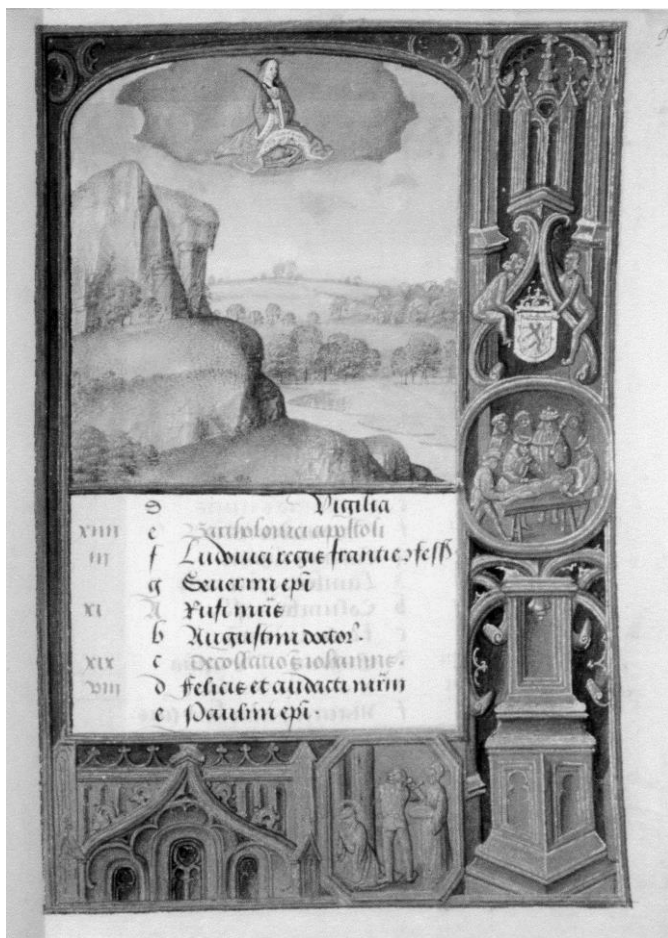 d Vigilia
xiiii e Bartholomei apostoli
iii f Ludovici regis francie ɔfess
g Severini epi
xi A Rufi mris
b Augustini doctor.
xix c Decollatio s iohannis.
viii d Felicis et audacti mrm
e Paulini epi.